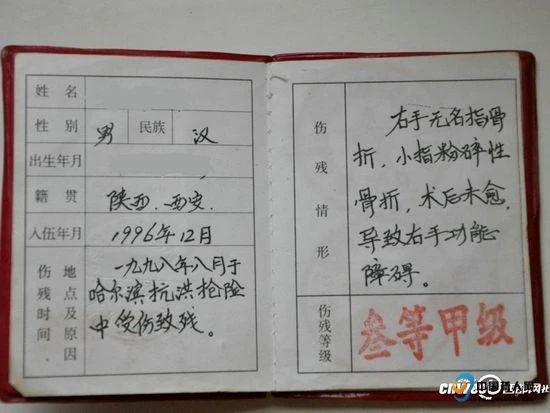 姓名
性别 男 民族 汉
出生年月
籍贯 陕西.西安.
入伍年月 1996年12月
伤残时间 地点及原因
一九九八年八月于
哈尔滨抗洪抢险
中受伤致残。
伤残情形
右手无名指骨
折,小指粉碎性
骨折,术后未愈,
导致右手功能
障碍。
伤残等级 叁等甲级